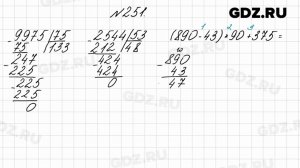 №251.
GDZ.RU
1 2 3
- 9975 | 75   - 2544 | 53   (890-43)·90+375=
75 | 133   212 | 48   10
- 247   - 424   - 890
225   424   43
- 225   0   47
225
0
GDZ.RU